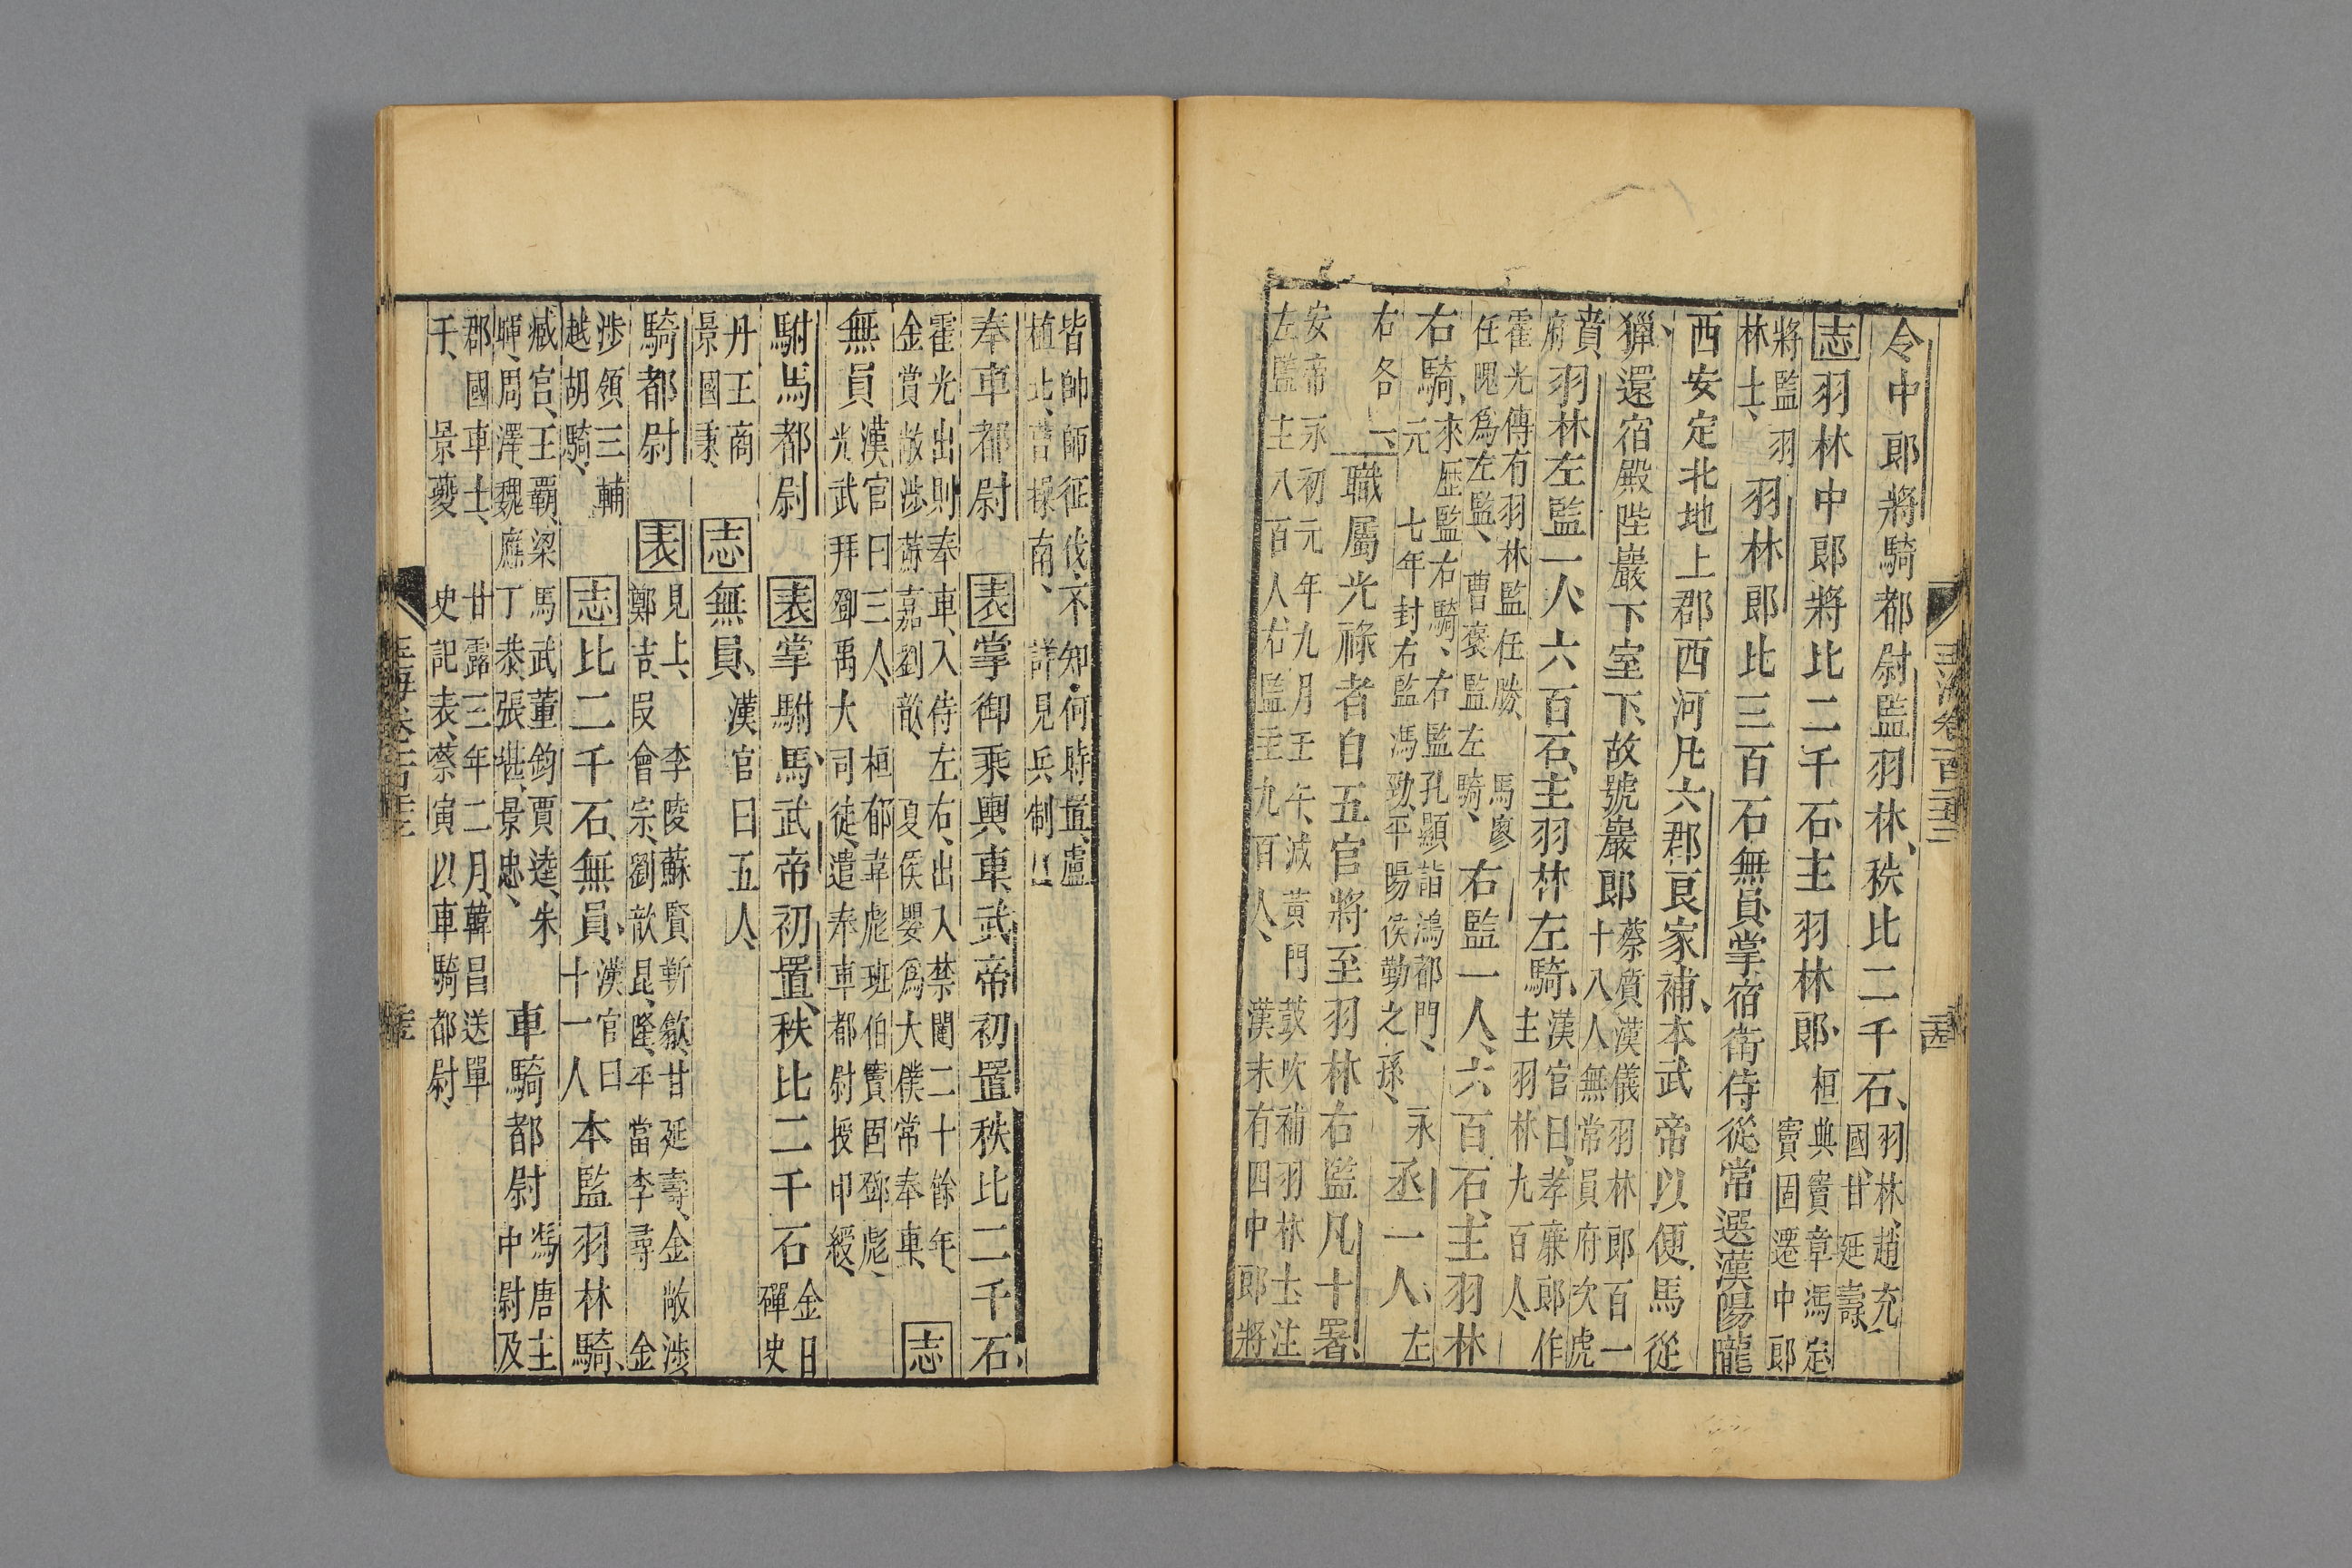 令中郎將騎都尉監羽林秩比二千石羽林趙充
國甘延壽
志羽林中郎將比二千石主羽林郎桓典竇章馮定
竇固遷中郎
將監羽
林士羽林郎比三百石無員掌宿衛侍從常選漢陽隴
西安定北地上郡西河凡六郡良家補本武帝以便馬從
獵還宿殿陛巖下室下故號巖郎蔡質漢儀羽林郎百一
十八人無常員府次虎
賁
府羽林左監一人六百石主羽林左騎漢官曰孝廉郎作
主羽林九百人
霍光傳有羽林監任勝
任隗爲左監曹褒監左騎馬廖右監一人六百石主羽林
右騎來歷監右騎右監孔顯詣鴻都門永
元七年封右監馮勁平陽侯勤之孫丞一人左
右各一職屬光祿者自五官將至羽林右監凡十署
安帝永初元年九月壬午減黃門鼓吹補羽林士注
左監主八百人右監主九百人漢末有四中郎將
玉海卷一百三十三
皆帥師征伐不知何時置盧
植北曹操南詳見兵制
奉車都尉表掌御乘輿車武帝初置秩比二千石
霍光出則奉車入侍左右出入禁闥二十餘年
金賞敞涉蕭嘉劉歆夏侯嬰爲大僕常奉車志
無員漢官曰三人桓郁韋彪班伯竇固鄧彪
光武拜鄧禹大司徒遣奉車都尉授印綬
駙馬都尉表掌駙馬武帝初置秩比二千石金日
磾史
丹王商
景國秉志無員漢官曰五人
騎都尉表見上李陵蘇賢靳歙甘延壽金敞涉
鄭吉段會宗劉歆昆隆平當李尋金
涉領三輔
越胡騎志比二千石無員漢官曰
十一人本監羽林騎
臧宮王霸梁馬武董鈞賈逵朱
暉周澤魏應丁恭張堪景忠車騎都尉馮唐主
中尉及
郡國車士甘露三年二月韓昌送單
于景夔史記表蔡寅以車騎都尉